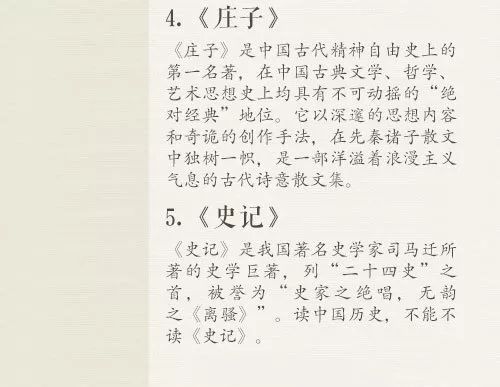 4.《庄子》
《庄子》是中国古代精神自由史上的
第一名著，在中国古典文学、哲学、
艺术思想史上均具有不可动摇的“绝
对经典”地位。它以深邃的思想内容
和奇诡的创作手法，在先秦诸子散文
中独树一帜，是一部洋溢着浪漫主义
气息的古代诗意散文集。
5.《史记》
《史记》是我国著名史学家司马迁所
著的史学巨著，列“二十四史”之
首，被誉为“史家之绝唱，无韵
之《离骚》”。读中国历史，不能不
读《史记》。